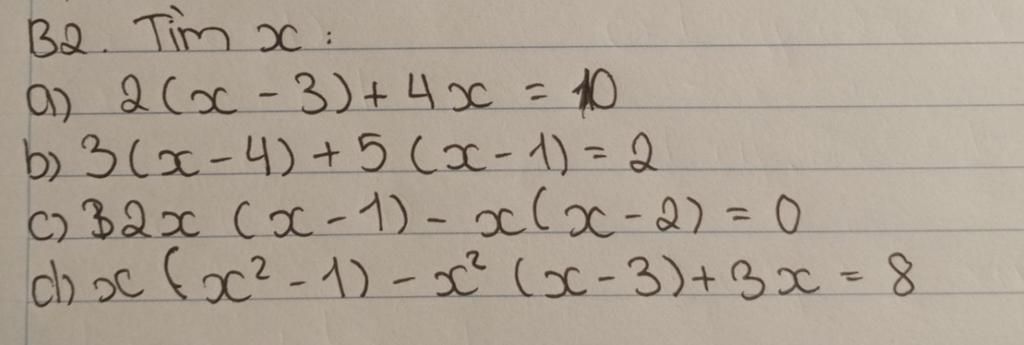 B2. Tìm x :
a) 2(x - 3) + 4x = 10
b) 3(x - 4) + 5 (x - 1) = 2
c) 32x (x - 1) - x(x - 2) = 0
d) x (x² - 1) - x² (x - 3) + 3x = 8